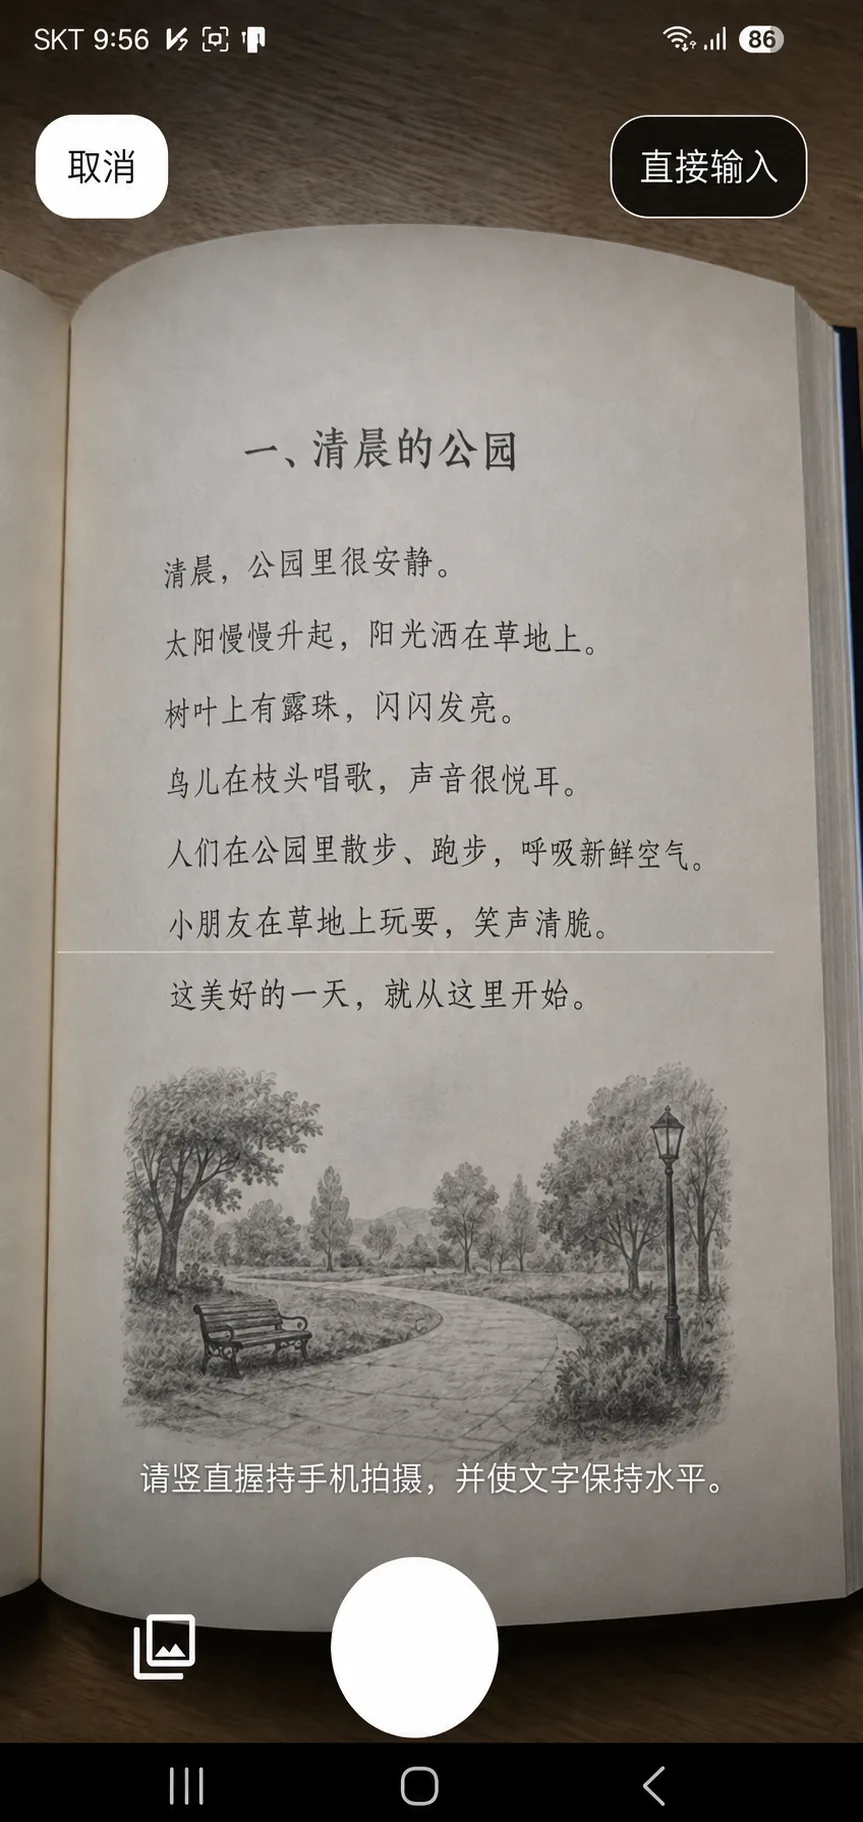 SKT 9:56
86
取消
直接输入
一、清晨的公园
清晨，公园里很安静。
太阳慢慢升起，阳光洒在草地上。
树叶上有露珠，闪闪发亮。
鸟儿在枝头唱歌，声音很悦耳。
人们在公园里散步、跑步，呼吸新鲜空气。
小朋友在草地上玩耍，笑声清脆。
这美好的一天，就从这里开始。
请竖直握持手机拍摄，并使文字保持水平。